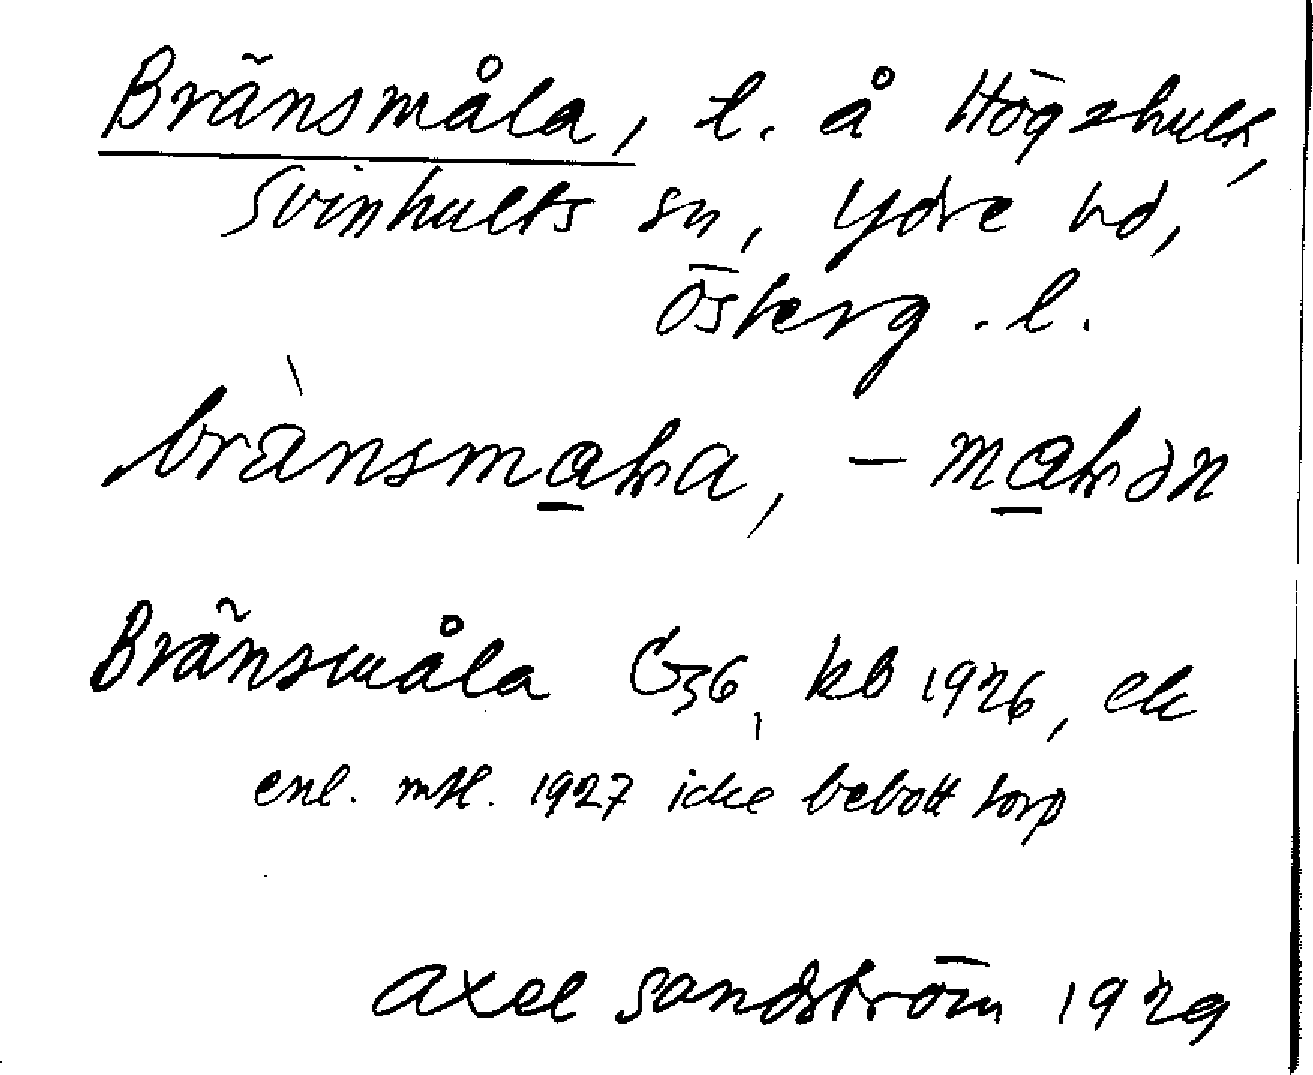 Bränsmåla, l. å Högshult,
Svinhults sn, Ydre hd,
Österg. l.
Bränsmåla G36, kb 1926, ek
enl. mtl. 1927 icke bebott torp
Axel Sandström 1929